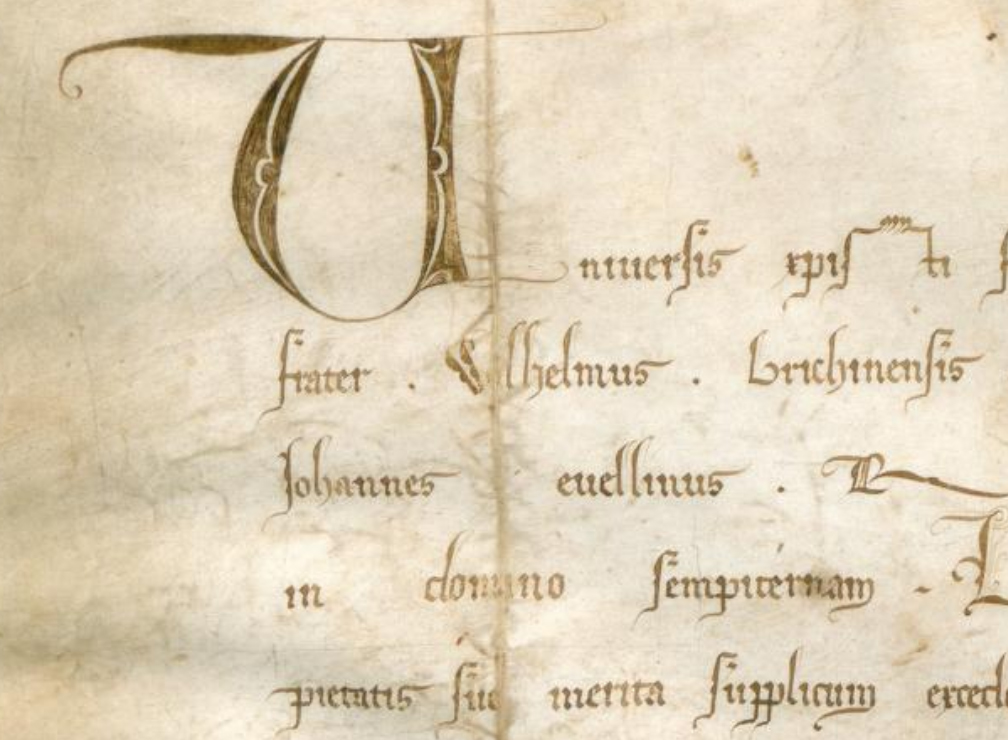 Universis xpisti
frater . Wilhelmus . brichinensis
Johannes evellinus . R
in domino sempiternam .
pietatis sue merita supplicum exced